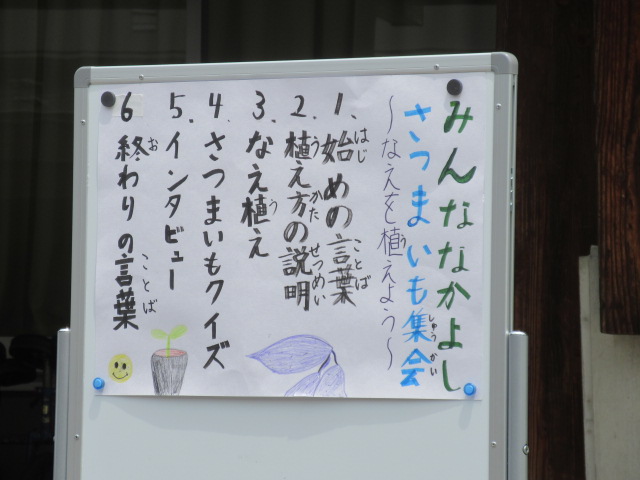 みんななかよし
さつまいも集会
しゅうかい
～なえを植えよう～
う
1、始めの言葉
はじ ことば
2、植え方の説明
う かた せつめい
3、なえ植え
う
4、さつまいもクイズ
5、インタビュー
6 終わりの言葉
お ことば